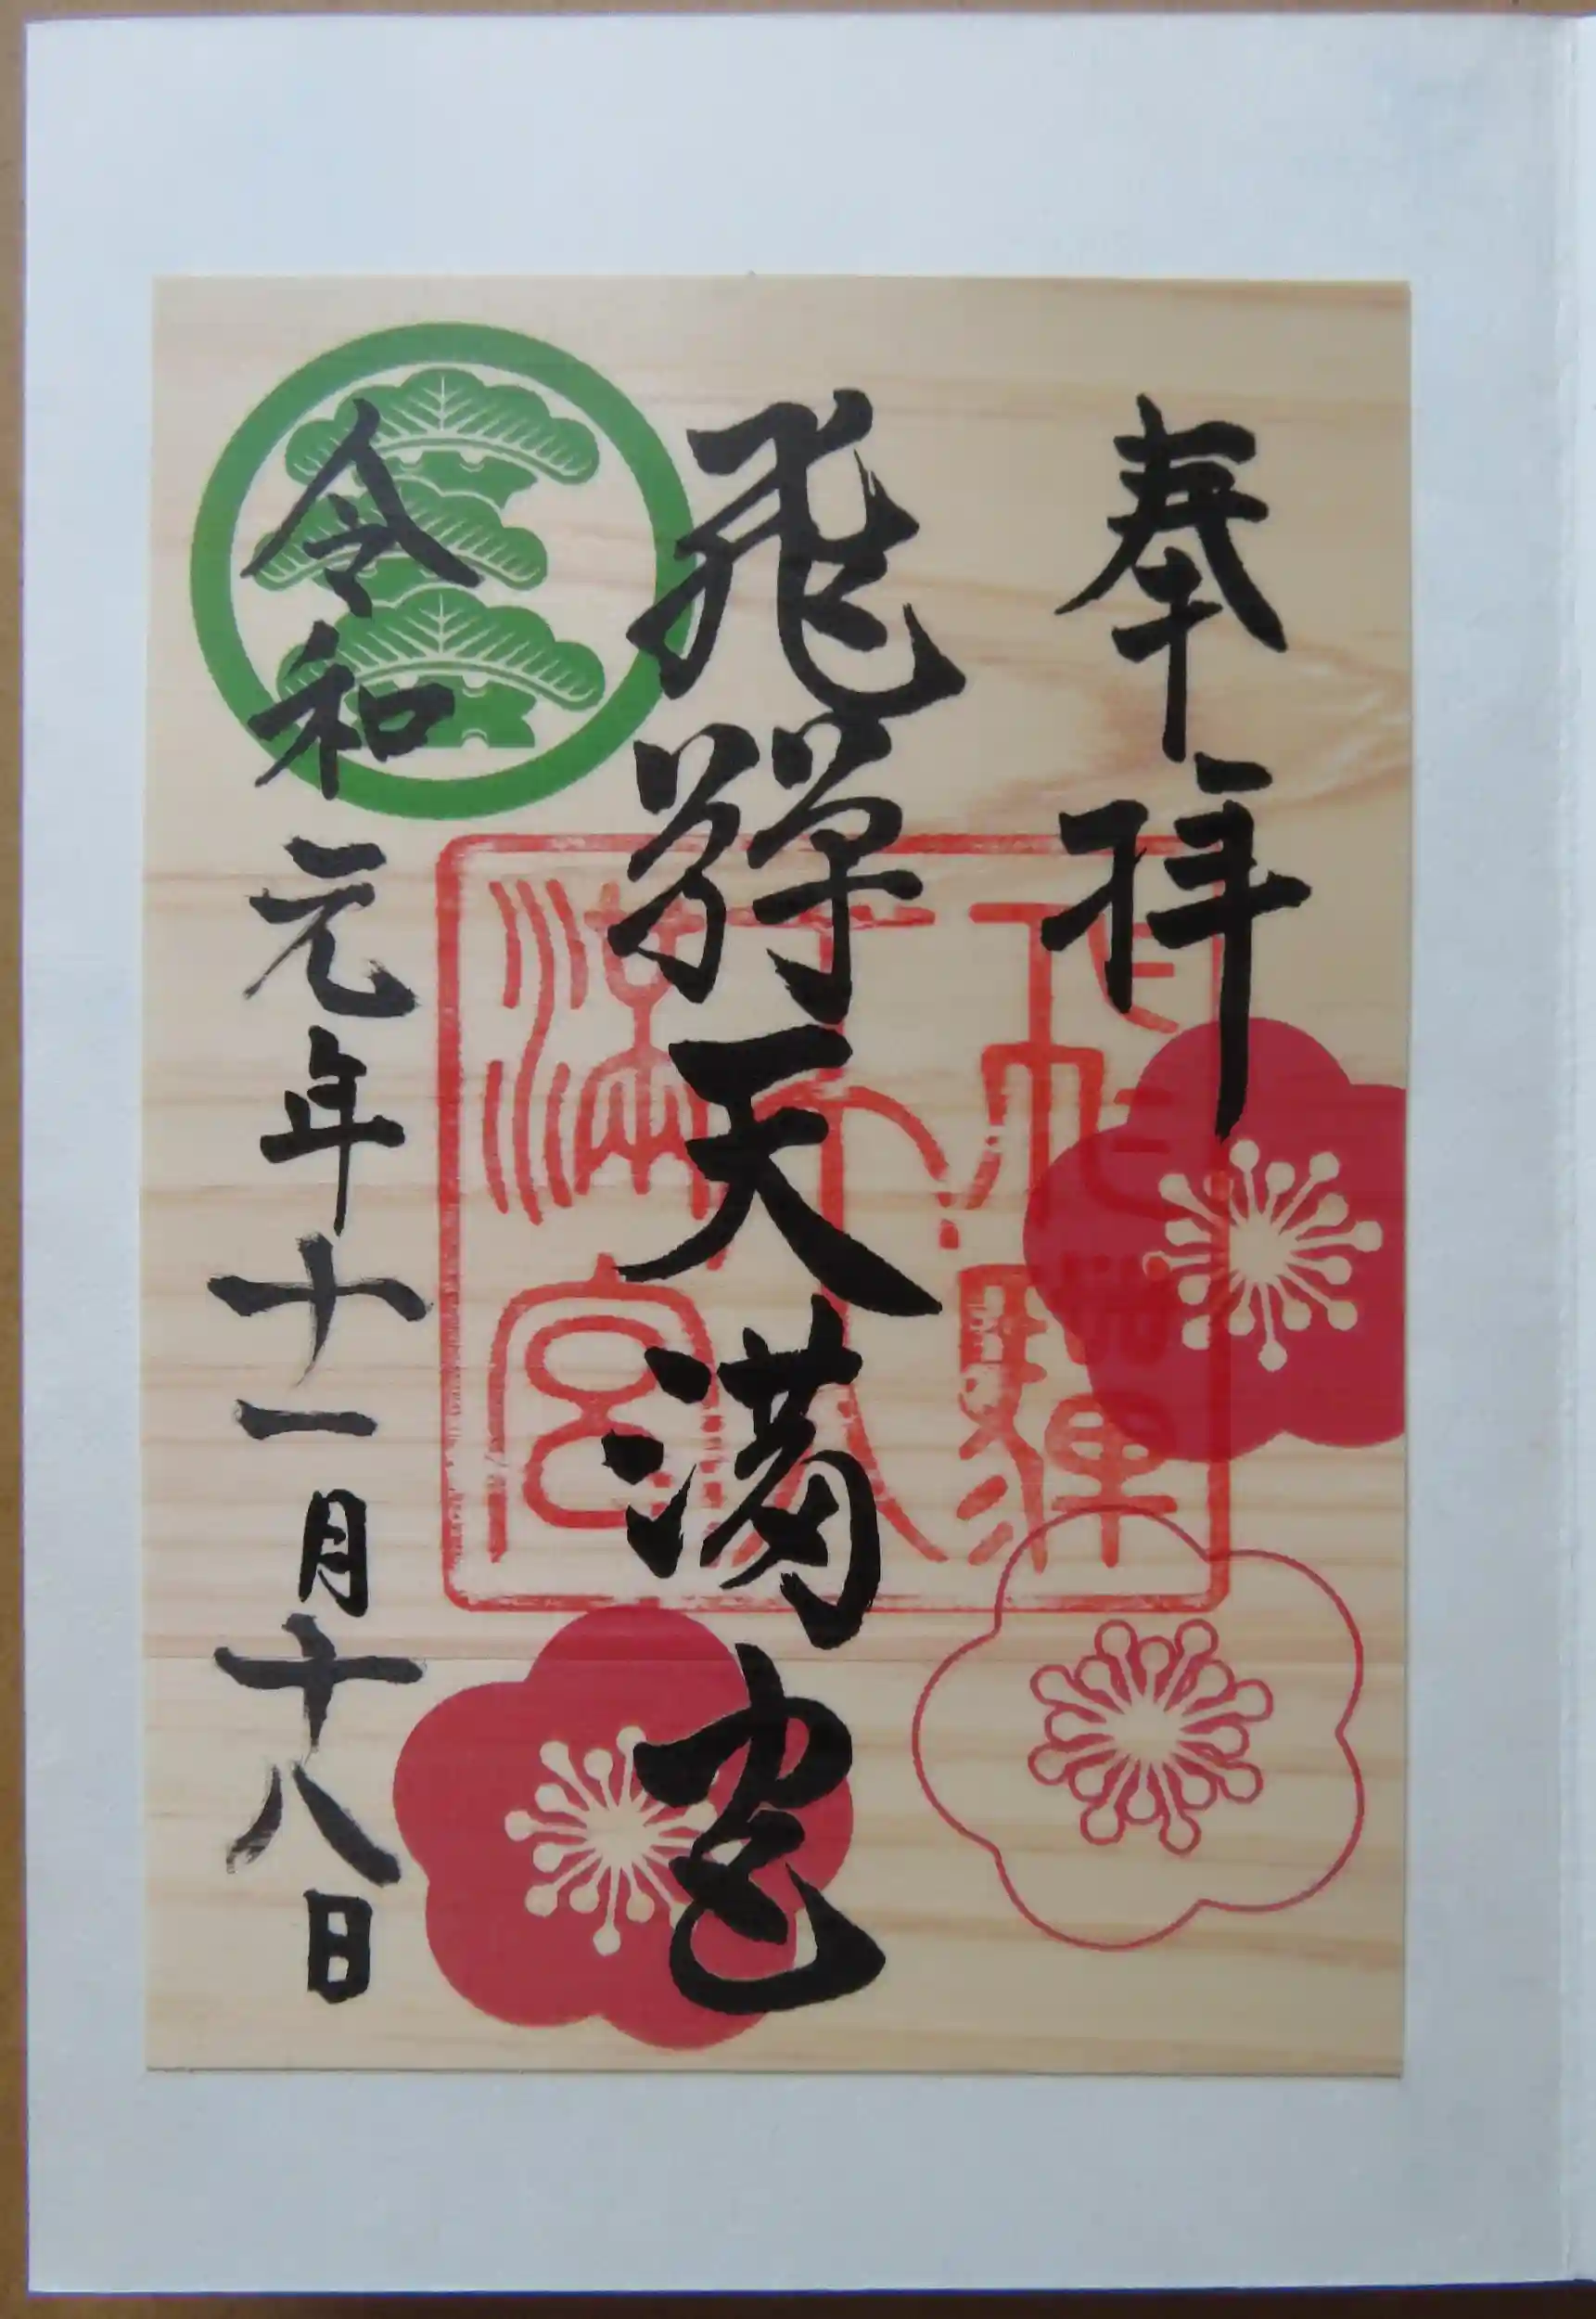 奉拝
飛騨天満宮
令和元年十一月十八日
飛騨天満宮